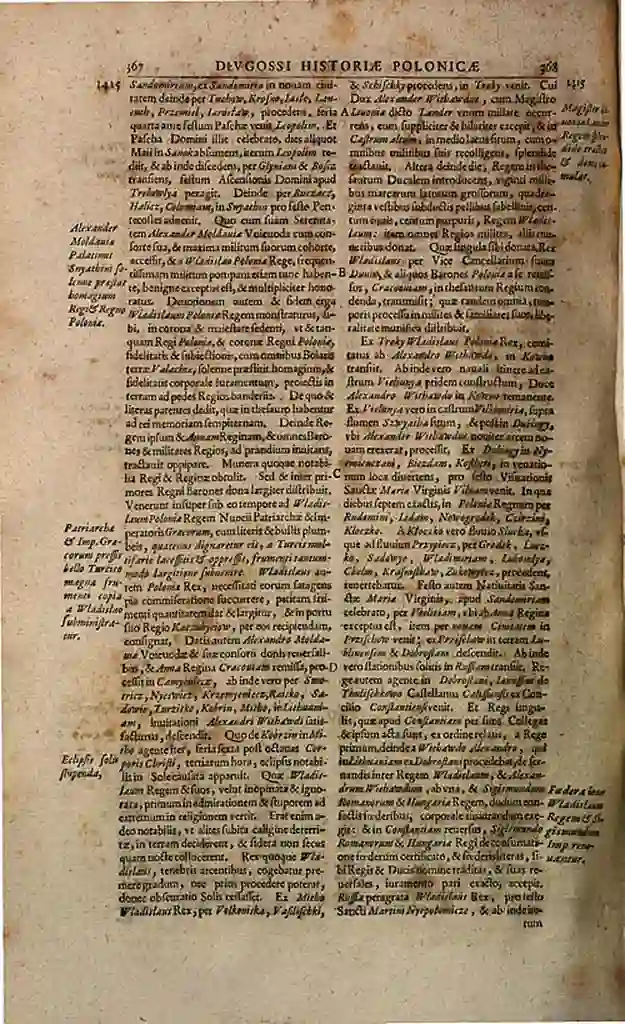 367
DLVGOSSI HISTORIÆ POLONICÆ
368
1415
Sandomiriam, ex Sandomiria in nouam ciui-
tatem deinde per Tuchow, Krosno, Iaslo, Lan-
Przemisl, Iaroslaw, procedens, feria
quarta ante festum Paschæ venit Leopolim. Et
Pascha Domini illic celebrato, dies aliquot
Maii in Sanok absumens, iterum Leopolim re-
diit, & ab inde discedens, per Glyniani &
transiens, festum Ascensionis Domini apud
Trebowlya peragit. Deinde per Buczacz,
Halicz, Colomiam, in Snyathin pro festo Pen-
tecostes aduenit. Quo cum suam Serenita-
tem Alexander Moldauiæ Voieuoda cum con-
sorte sua, & maxima militum suorum cohorte,
accessit, & a Wladislao Poloniæ Rege, frequen-
tissimam militum pompam etiam tunc haben-
te, benigne exceptus est, & multipliciter hono-
ratus. Deuotionem autem & fidem erga
Wladislaum Poloniæ Regem monstraturus, si-
bi, in corona & maiestate sedenti, vt & tan-
quam Regi Poloniæ, & coronæ Regni Poloniæ,
fidelitatis & subiectionis, cum omnibus Boiaris
terræ Valachiæ, solenne præstitit homagium, &
fidelitatis corporale iuramentum, proiectis in
terram ad pedes Regios banderiis. De quo &
literas patentes dedit, quæ in thesauro habentur
ad rei memoriam sempiternam. Deinde Re-
gem ipsum & Annam Reginam, & omnes Baro-
nes & milites Regios, ad prandium inuitans,
tractauit opipare. Munera quoque notabi-
lia Regi & Reginæ obtulit. Sed & inter pri-
mores Regni Barones dona largiter distribuit.
Venerunt insuper sub eo tempore ad Wladis-
laum Poloniæ Regem Nuncii Patriarchæ & Im-
peratoris Græcorum, cum literis & bullis plum-
beis, quatenus dignaretur eis, a Turcis mul-
tifarie lacessitis & oppressis, frumenti tantum-
modo largitione subuenire. Wladislaus au-
tem Poloniæ Rex, necessitati eorum satagens
pia commiseratione succurrere, petitam fru-
menti quantitatem dat & largitur, & in portu
suo Regio Kaczubyeiow, per eos recipiendam,
consignat. Datis autem Alexandro Molda-
uiæ Voieuodæ & suæ consorti donis reuersali-
bus, & Anna Regina Cracouiam remissa, pro-
cessit in Camyenyecz, ab inde vero per Smo-
tricz, Krzemyenyecz, Ratko, Sa-
dowie, Turzisko, Kobrin, Mitho, in Lithuani-
am, inuitationi Alexandri Withawdi satis-
facturus, descendit. Quo de Kobrzin in Mi-
tho agente iter, feria sexta post octauas Cor-
poris Christi, tertiarum hora, eclipsis notabi-
lis in Sole causata apparuit. Quæ Wladis-
laum Regem & suos, velut inopinata & igno-
rata, primum in admirationem & stuporem ad
extremum in religionem vertit. Erat enim a-
deo notabilis, vt alites subita caligine deterri-
tæ, in terram deciderent, & sidera non secus
quam nocte collucerent. Rex quoque Wla-
dislaus, tenebris arcentibus, cogebatur pre-
mere gradum, nec prius procedere poterat,
donec obscuratio Solis cessasset. Ex Mitho
Wladislaus Rex, per Volkoniska, Vasilischki,
Alexander
Moldauiæ
Palatinus
Snyathini so-
lenne præstat
homagium
Regi & Regno
Poloniæ.
Patriarchæ
& Imp. Græ-
corum pressis
bello Turcico
magna fru-
menti copia
a Wladislao
subministra-
tur.
Eclipsis solis
stupenda,
A
B
C
D
& Schischky procedens, in Troky venit. Cui
Dux Alexander Withawdus, cum Magistro
Liuoniæ dicto Lander vnum milite occur-
rens, eum suppliciter & hilariter excepit, & in
Castrum altum, in medio lacus situm, cum o-
mnibus militibus suis recolligens, splendide
tractauit. Altera deinde die, Regem in the-
saurum Ducalem introducens, viginti milli-
bus marcarum latorum grossorum, quadra-
ginta vestibus subductis pellibus sabellinis, cen-
tum equis, centum purpuris, Regem Wladis-
laum: item omnes Regios milites, aliis mu-
neribus donat. Quæ singula sibi donata, Rex
Wladislaus per Vice Cancellarium suum
Dunin, & aliquos Barones Poloniæ a se remis-
sos, Cracouiam, in thesaurum Regium con-
denda, transmisit; quæ tandem omnia, tem-
poris processu in milites & familiares suos, libe-
ralitate munifica distribuit.
Ex Troky Wladislaus Poloniæ Rex, comi-
tatus ab Alexandro Withawdo, in Kowno
transiit. Ab inde vero nauali itinere ad ca-
strum Vielunya pridem constructum, Duce
Alexandro Withawdo in Kowno remanente.
Ex Vielunya vero in castrum supra
flumen situm, & postin Dubingy,
vbi Alexander Withawdus nouiter arcem no-
uam erexerat, processit. Ex Dubingy in
in venatio-
num loca diuertens, pro festo Visitationis
Sanctæ Mariæ Virginis Vilnam venit. In qua
diebus septem exactis, in Poloniæ Regnum per
Rudomini, Lidam, Nowogrodek, Czirzin,
Kloczko. A Kloczko vero Bouio Sluchæ, vs-
que ad fluuium Przypiecz, per Grodek, Lucz-
ko, Sadowye, Wladimiriam, Lubomlya,
Chelm, Krasnystaw, procedens,
reuertebatur. Festo autem Natiuitatis San-
ctæ Mariæ Virginis, apud Sandomiriam
celebrato, per Visliciam, vbi ab Anna Regina
exceptus est, item per nouam Ciuitatem in
Przischow venit; ex Przischow in terram Lu-
blinensem & Dobrostani descendit. Ab inde
vero stationibus solitis in Russiam transiit. Re-
ge autem agente in Dobrostani, Ianussius de
Thulischkowo Castellanus Calissiensis ex Con-
cilio Constantiensi venit. Et Regi singu-
lis, quæ apud Constantiam per suos Collegas
& ipsum acta sunt, ex ordine relatis, a Rege
primum, deinde a Withawdo Alexandro, qui
in Lithuaniam ex Dobrostani procedebat, de ser-
uandis inter Regem Wladislaum, & Alexan-
drum Withawdum, ab vna, & Sigismundum
Romanorum & Hungariæ Regem, dudum con-
fectis foederibus, corporale iusiurandum exe-
git: & in Constantiam reuersus, Sigismundo
Romanorum & Hungariæ Regi de consumati-
one foederum certificato, & foederis literas, si-
bi Regis & Ducis nomine traditas, & suas re-
uersales, iuramento pari exacto, accepit.
Russia peragrata Wladislaus Rex, pro festo
Sancti Martini Nyepolomicze, & ab inde ite-
rum
1415
Magister Li-
uoniæ
Regem splen-
dide tracta
& donis cu-
mulat.
Foedera inter
Wladislaum
Regem & Si-
gismundum
Imp. reno-
uantur.